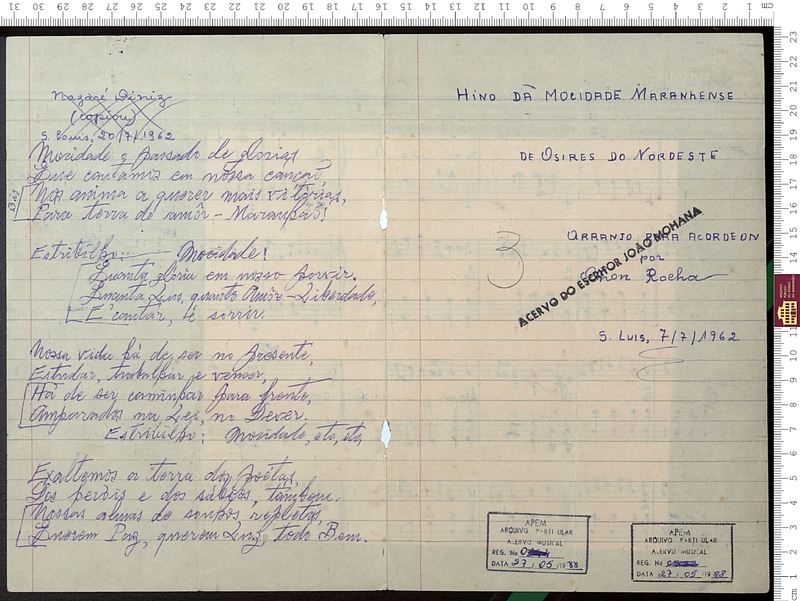 Nazaré Diniz
(copiou)
S. Luís, 20/7/1962
Mocidade q passado de glorias
Que cantamos em nossa canção,
Bis
Nos anima a querer mais vitórias,
Para terra do amôr - Maranhão!
Estribilho: Mocidade!
Quanta gloria em nosso porvir.
Quanta Luz, quanto Amôr - Liberdade,
E' cantar, é sorrir.
Nossa vida há de ser no presente,
Estudar, trabalhar e vencer,
Há de ser caminhar para frente,
Amparados na Lei, no Dever.
Estribilho: Mocidade, etc, etc,
Exaltemos a terra dos poétas,
Dos heróis e dos sábios, tambem.
Nossas almas de sonhos repletas,
Querem Paz, querem Luz, todo Bem.
Hino da Mocidade Maranhense
de Osires do Nordeste
3
Arranjo para acordeon
por
Rocha
ACERVO DO ESCRITOR JOÃO MOHANA
S. Luis, 7/7/1962
APEM
ARQUIVO PARTICULAR
ACERVO MUSICAL
REG. No
DATA 27 / 05 / 1988
APEM
ARQUIVO PARTICULAR
ACERVO MUSICAL
REG. No
DATA 27 / 05 / 1988